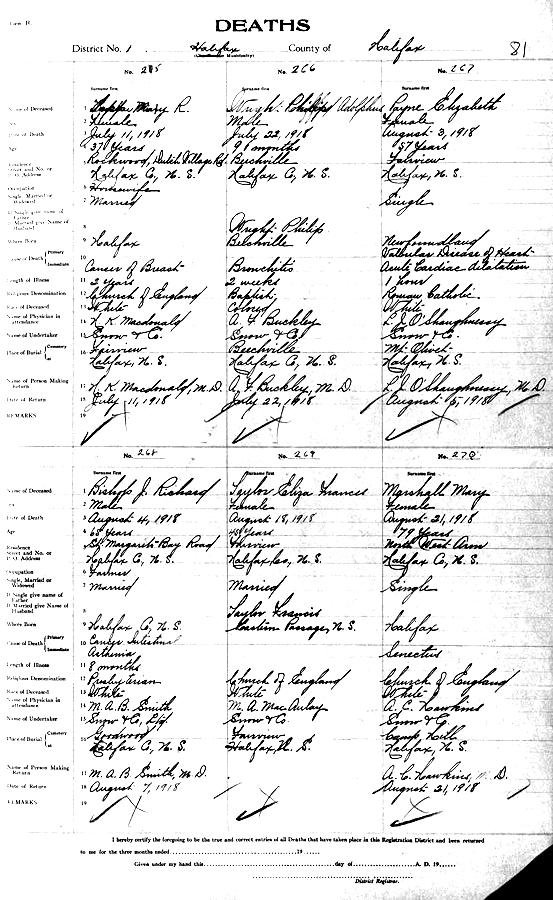 Form B.
DEATHS
District No. 1 Halifax County of Halifax 81
(City, Town or Municipality)
No. 265 No. 266 No. 267
Surname first Surname first Surname first
Name of Deceased 1 Mary R. Wright Philipp Adolphus Payne Elizabeth
Sex 2 Female Male Female
Date of Death 3 July 11, 1918 July 22, 1918 August 3, 1918
Age 4 37 Years 9 months 57 Years
Residence Street and No. or P.O. Address 5 Rockwood, Dutch Village Rd. Beechville Fairview
Halifax Co, N. S. Halifax Co, N. S. Halifax, N. S.
Occupation 6 Housewife
Single, Married or Widowed 7 Married Single
If Single give name of Father
If Married give Name of Husband 8 Wright Philip
Where Born 9 Halifax Beechville Newfoundland
Cause of Death { Primary 10 Valvular Disease of Heart
Immediate Cancer of Breast Bronchitis Acute Cardiac dilatation
Length of Illness 11 2 Years 2 weeks 1 hour
Religious Denomination 12 Church of England Baptist Roman Catholic
Race of Deceased 13 White Colored White
Name of Physician in attendance 14 N. K. Macdonald A. F Buckley L. J. O'Shaughnessy
Name of Undertaker 15 Snow & Co. Snow & Co Snow & Co.
Place of Burial { Cemetery 16 Fairview Beechville Mt Olivet
at Halifax, N. S. Halifax Co, N. S. Halifax, N. S.
Name of Person Making Return 17 N. K. Macdonald, M.D. A, F Buckley, M. D L. J. O'Shaughnessy, M. D.
Date of Return 18 July 11, 1918 July 22, 1918 August 5, 1918
REMARKS 19
No. 268 No. 269 No. 270
Surname first Surname first Surname first
Name of Deceased 1 Bishop J. Richard Taylor Eliza Frances Marshall Mary
Sex 2 Male Female Female
Date of Death 3 August 4, 1918 August 18, 1918 August 21, 1918
Age 4 65 Years Years 79 Years
Residence Street and No. or P.O. Address 5 St. Margarets Bay Road Fairview North West Arm
Halifax Co, N. S. Halifax Co, N. S. Halifax Co, N. S.
Occupation 6 Farmer
Single, Married or Widowed 7 Married Married Single
If Single give name of Father
If Married give Name of Husband 8 Taylor Francis
Where Born 9 Halifax Co, N. S. Eastern Passage, N.S. Halifax
Cause of Death { Primary 10 Cancer Intestinal
Immediate Asthenia Senectus
Length of Illness 11 8 months
Religious Denomination 12 Presbyterian Church of England Church of England
Race of Deceased 13 White White White
Name of Physician in attendance 14 M. A. B. Smith M. A. MacAulay A. C. Hawkins
Name of Undertaker 15 Snow & Co, Ltd Snow & Co. Snow & Co.
Place of Burial { Cemetery 16 Goodwood Fairview Camp Hill
at Halifax Co, N. S. Halifax, N. S. Halifax, N. S.
Name of Person Making Return 17 M. A. B Smith, M. D. A. C. Hawkins, M. D.
Date of Return 18 August 7, 1918 August 21, 1918
REMARKS 19
I hereby certify the foregoing to be the true and correct entries of all Deaths that have taken place in this Registration District and been returned
to me for the three months ended 19
Given under my hand this day of A. D. 19
District Registrar.